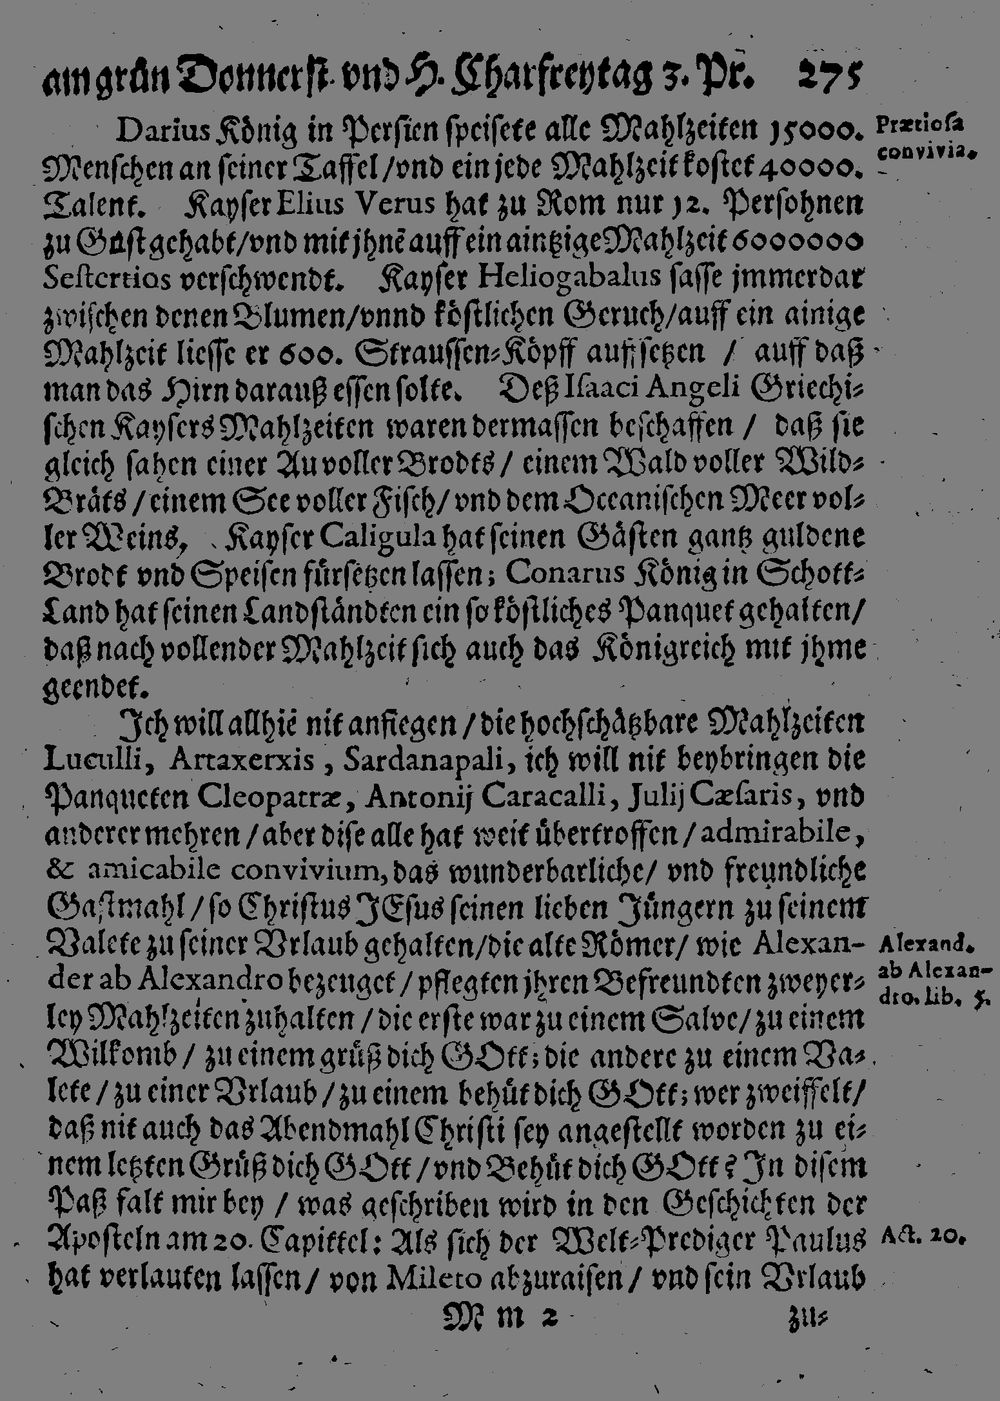 am grün Donnerst. vnd H. Charfreytag 3. Pr. 275
Darius König in Persien speisete alle Mahlzeiten 15000.
Prætiosa
convivia.
Menschen an seiner Taffel / vnd ein jede Mahlzeit kostet 40000.
Talent. Kayser Elius Verus hat zu Rom nur 12. Persohnen
zu Gast gehabt / vnd mit jhnē auff ein aintzige Mahlzeit 6000000
Sestertios verschwendt. Kayser Heliogabalus sasse jmmerdar
zwischen denen Blumen / vnnd köstlichen Geruch / auff ein ainige
Mahlzeit liesse er 600. Straussen-Köpff auffsetzen / auff daß
man das Hirn darauß essen solte. Deß Isaaci Angeli Griechi-
schen Kaysers Mahlzeiten waren dermassen beschaffen / daß sie
gleich sahen einer Au voller Brodts / einem Wald voller Wild-
Bräts / einem See voller Fisch / vnd dem Oceanischen Meer vol-
ler Weins, Kayser Caligula hat seinen Gästen gantz guldene
Brodt vnd Speisen fürsetzen lassen; Conarus König in Schott-
Land hat seinen Landständten ein so köstliches Panquet gehalten /
daß nach vollender Mahlzeit sich auch das Königreich mit jhme
geendet.
Ich will allhiē nit anfiegen / die hochschätzbare Mahlzeiten
Luculli, Artaxerxis, Sardanapali, ich will nit beybringen die
Panqueten Cleopatræ, Antonij Caracalli, Julij Cæsaris, vnd
anderer mehren / aber dise alle hat weit übertroffen / admirabile,
& amicabile convivium, das wunderbarliche / vnd freundliche
Gastmahl / so Christus JEsus seinen lieben Jüngern zu seinem
Valete zu seiner Vrlaub gehalten / die alte Römer / wie Alexan-
der ab Alexandro bezeuget / pflegten jhren Befreundten zweyer-
Alexand.
ab Alexan-
dro. lib. 5.
ley Mahlzeiten zuhalten / die erste war zu einem Salve / zu einem
Wilkomb / zu einem grüß dich GOtt; die andere zu einem Va-
lete / zu einer Vrlaub / zu einem behüt dich GOtt; wer zweiffelt /
daß nit auch das Abendmahl Christi sey angestellt worden zu ei-
nem letzten Grüß dich GOtt / vnd Behüt dich GOtt? In disem
Paß falt mir bey / was geschriben wird in den Geschichten der
Aposteln am 20. Capittel: Als sich der Welt-Prediger Paulus
Act. 20.
hat verlauten lassen / von Mileto abzuraisen / vnd sein Vrlaub
M m 2
zu-